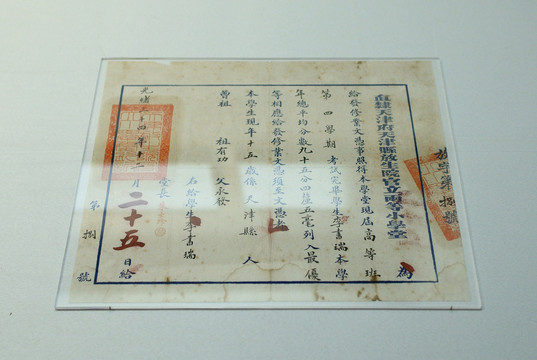 直隸天津府天津縣放生院官立兩等小學堂
為
給發修業文憑事照得本學堂現居高等班
第四學期考試完畢學生李書瑞本學
年總平均分數九十五分四釐五毫列入最優
等相應給發修業文憑須至文憑者
本學生現年十五歲係天津縣人
曾祖 祖有功 父承發
右給學生李書瑞
堂長
光緒三十四年十二月二十五日給
第捌號